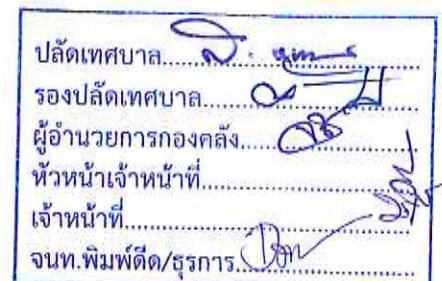 ปลัดเทศบาล....................
รองปลัดเทศบาล....................
ผู้อำนวยการกองคลัง....................
หัวหน้าเจ้าหน้าที่....................
เจ้าหน้าที่....................
จนท.พิมพ์ดีด/ธุรการ....................